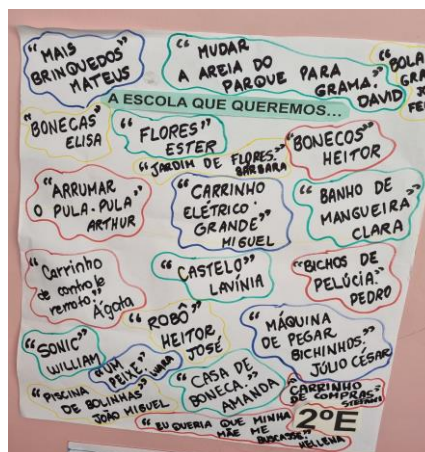 “MAIS
BRINQUEDOS”
MATEUS
“MUDAR
A AREIA DO
PARQUE PARA
GRAMA.”
DAVID
“BOLA
A ESCOLA QUE QUEREMOS...
“BONECAS”
ELISA
“FLORES”
ESTER
“JARDIM DE FLORES.”
BÁRBARA
“BONECOS”
HEITOR
“ARRUMAR
O PULA-PULA”
ARTHUR
“CARRINHO
ELÉTRICO
GRANDE”
MIGUEL
“BANHO DE
MANGUEIRA”
CLARA
“Carrinho
de controle
remoto.”
Ágata
“CASTELO”
LAVÍNIA
“BICHOS DE
PELÚCIA.”
PEDRO
“SONIC”
WILLIAM
“UM
PEIXE”
“ROBÔ”
HEITOR
JOSÉ
“MÁQUINA
DE PEGAR
BICHINHOS.”
JÚLIO CÉSAR
“PISCINA
DE BOLINHAS”
JOÃO MIGUEL
“CASA DE
BONECA.”
AMANDA
“CARRINHO
DE COMPRAS.”
“EU QUERIA QUE MINHA
MÃE ME
BUSCASSE.”
HELLENA
2ºE